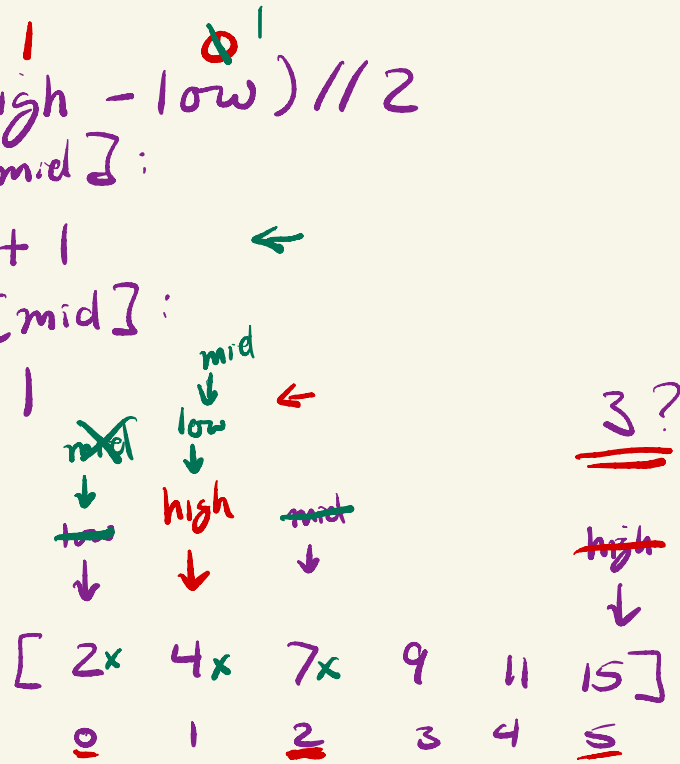 1 0 1
igh - low) // 2
mid]:
+ 1
[mid]:
mid
1 low 3?
mid
high mid
low high
[ 2x 4x 7x 9 11 15]
0 1 2 3 4 5